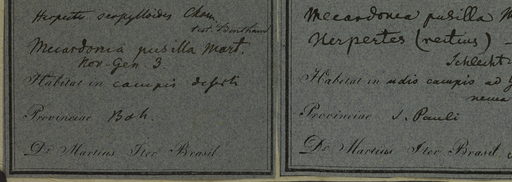 Herpestes serpylloides Cham.
test. Bentham
Mecardonia pusilla Mart.
Nov. Gen. 3
Habitat in campis
Provinciae Bah.
Dr Martius Iter Brasil.
Mecardonia pusilla M
Herpestes (rectius) -
Schlecht
Habitat in udis campis ad
Provinciae S. Pauli
Dr Martius Iter Brasil.